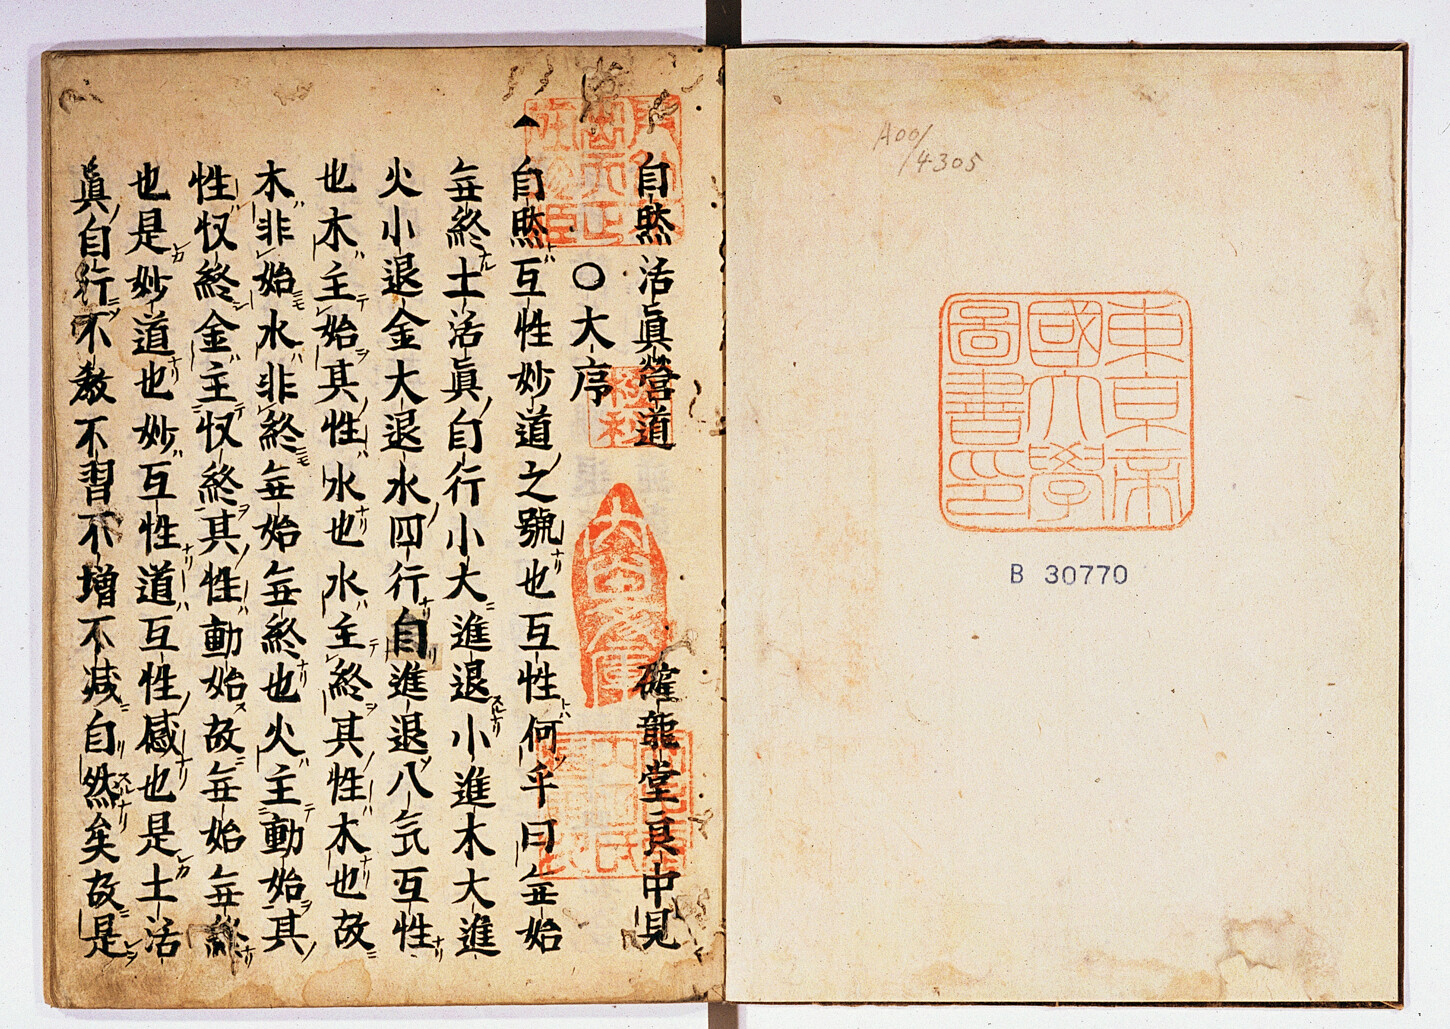 A00/
/4305
東京帝
國大學
圖書印
B 30770
自然活眞營道　確龍堂良中見
○大序
自然互性妙道之號也互性何乎曰無始
無終土活眞自行小大進退小進木大進
火小退金大退水四行自進退八気互性
也木主始其性水也水主終其性木也故
木非始水非終無始無終也火主動始其
性収終金主収終其性動始故無始無終
也是妙道也妙互性道互性感也是土活
眞自行不教不習不増不减自然矣故是